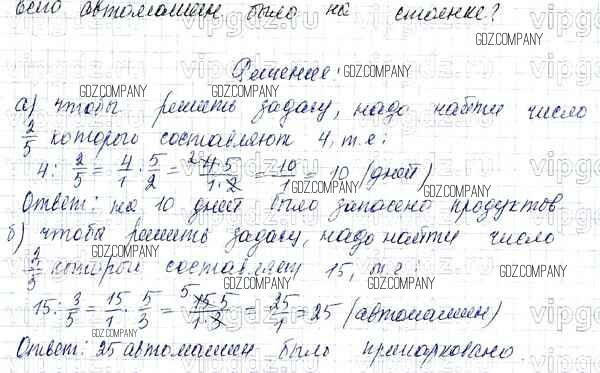 всего автомашин было на стоянке?
Решение:
а) чтобы решить задачу, надо найти число
2/5 которого составляют 4, т.е:
4 : 2/5 = 4/1 · 5/2 = 4·5/1·2 = 10/1 = 10 (дней)
Ответ: на 10 дней было запасено продуктов
б) чтобы решить задачу, надо найти число
3/5 которой составляет 15, т.е:
15 : 3/5 = 15/1 · 5/3 = 15·5/1·3 = 25/1 = 25 (автомашин)
Ответ: 25 автомашин было припарковано.
GDZ.COMPANY
vipgdz.ru